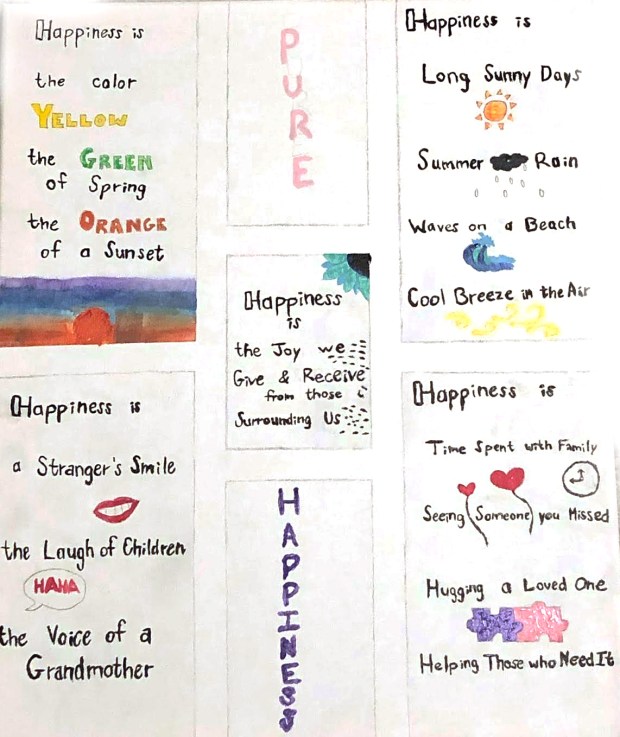 Happiness is
the color
YELLOW
the GREEN
of Spring
the ORANGE
of a Sunset
PURE
Happiness is
Long Sunny Days
Summer Rain
Waves on a Beach
Cool Breeze in the Air
Happiness
is
the Joy we
Give & Receive
from those
Surrounding Us
Happiness is
a Stranger's Smile
the Laugh of Children
HAHA
the Voice of a
Grandmother
HAPPINESS
Happiness is
Time Spent with Family
Seeing Someone you Missed
Hugging a Loved One
Helping Those who Need It